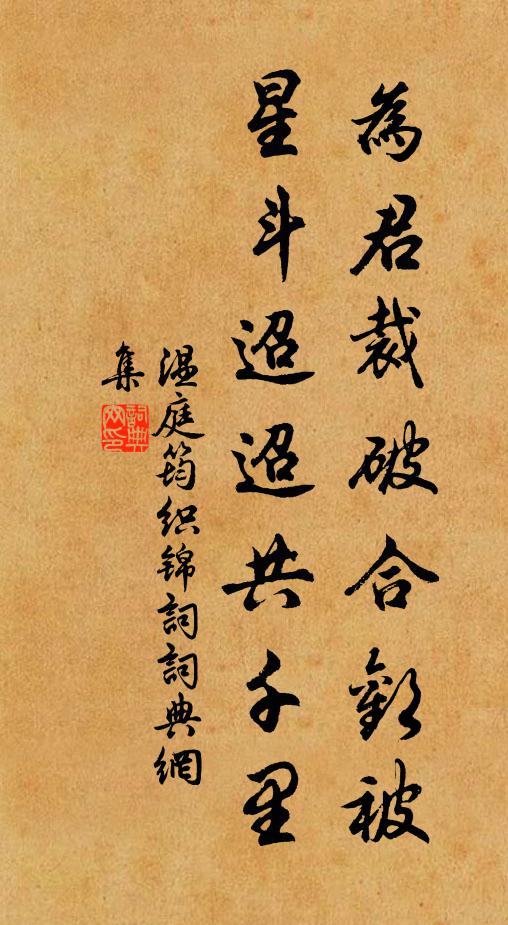 為君裁破合歡被
星斗迢迢共千里
溫庭筠織錦詞詞典網
集
詞典網印